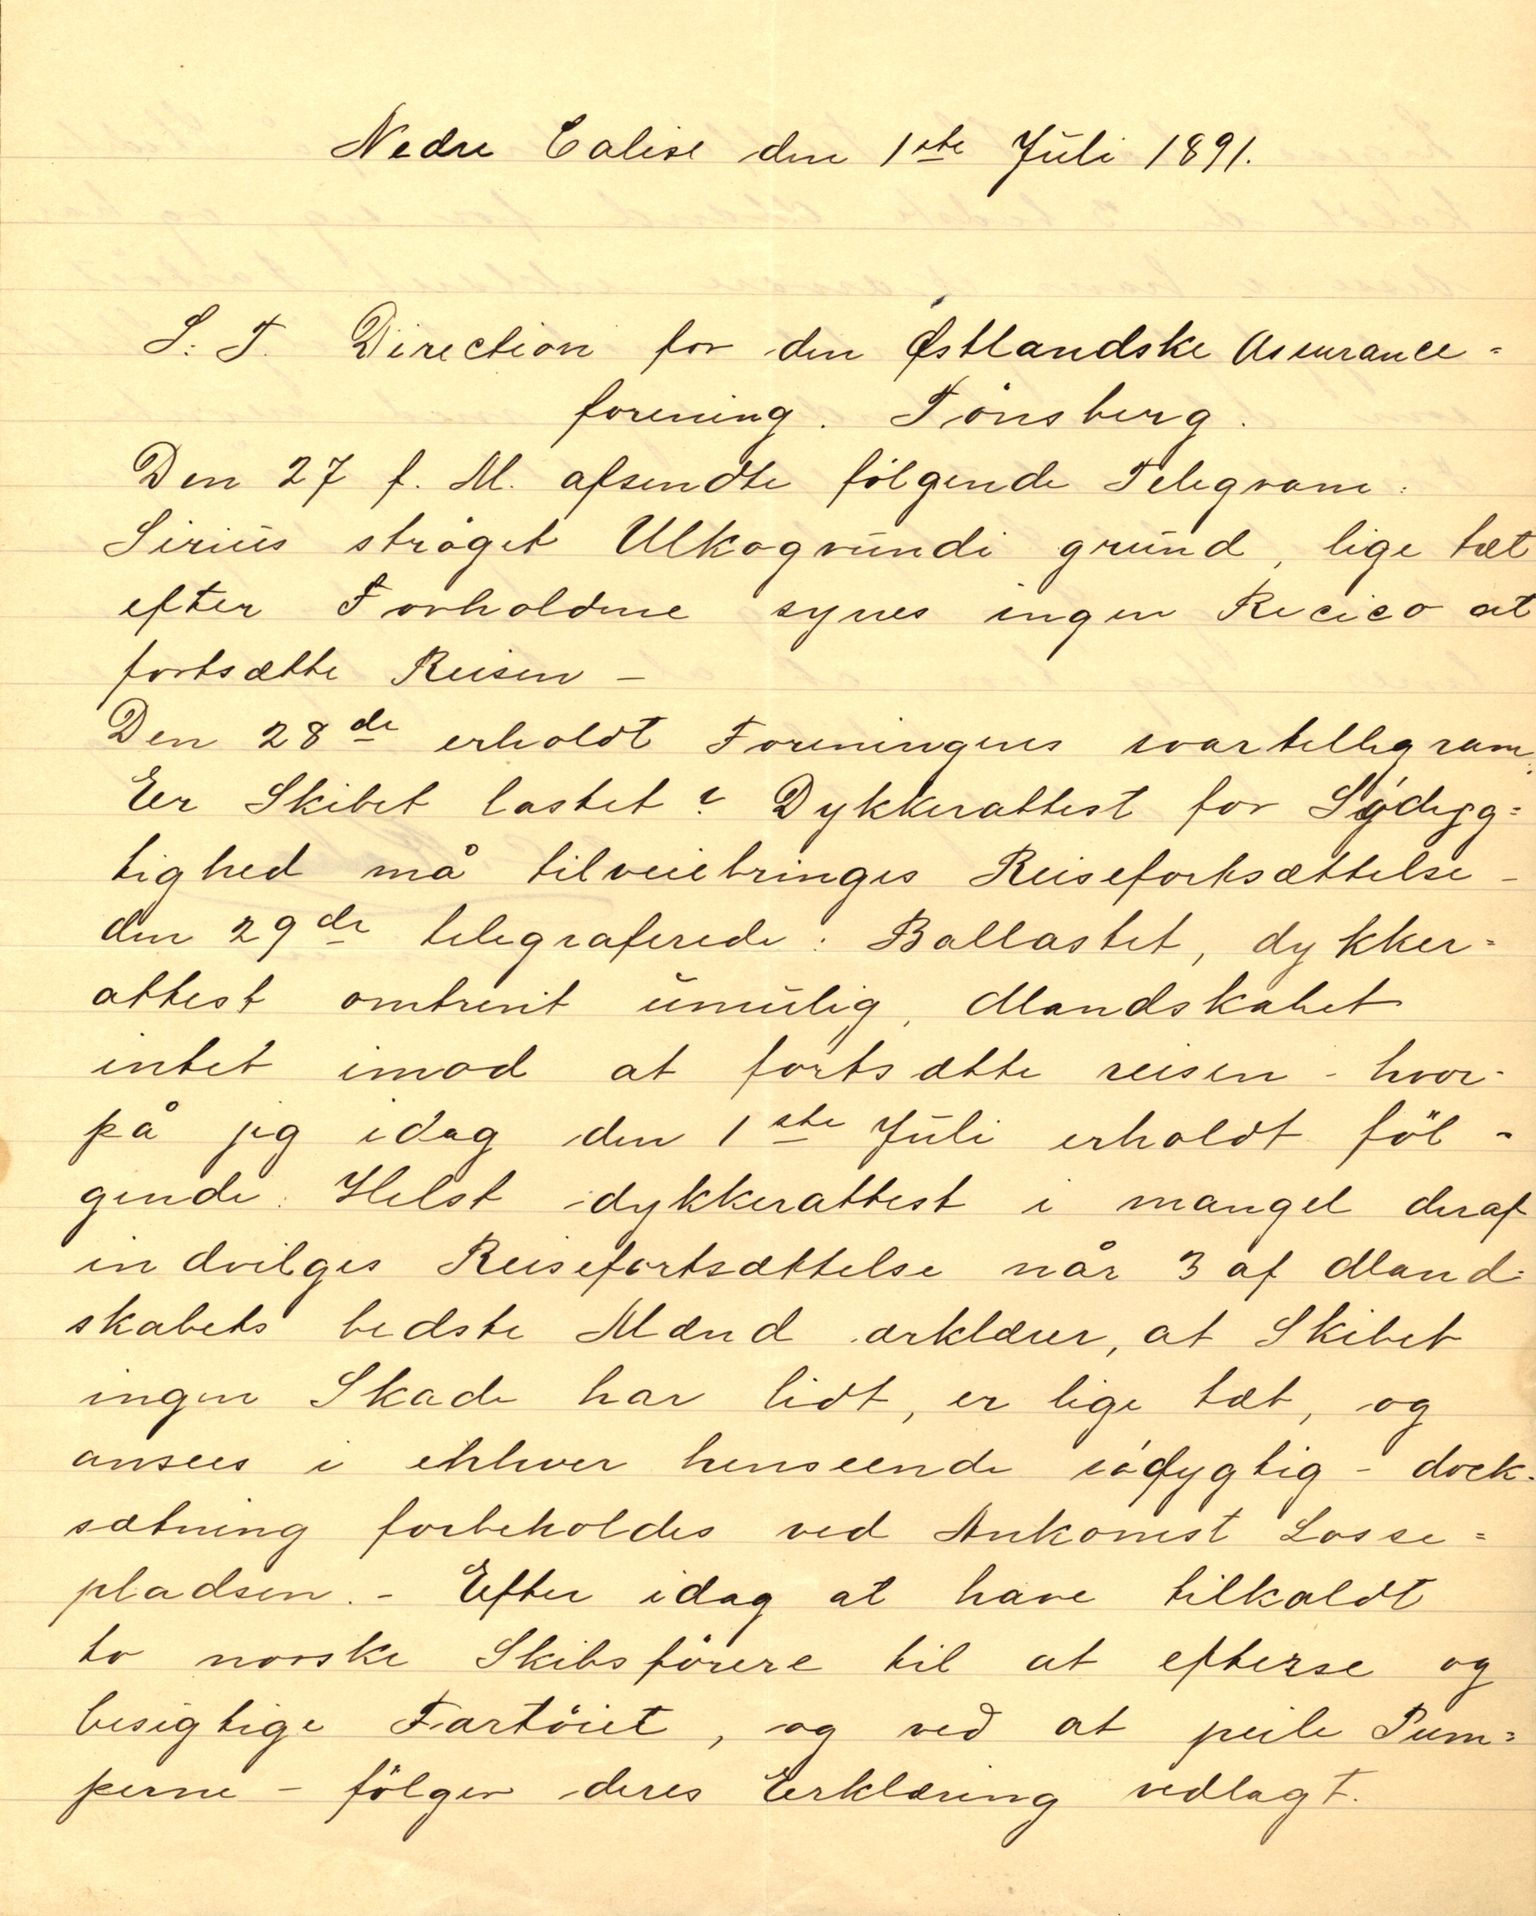 Nedre Calix den 1ste Juli 1891.
S. T. Direction for den Østlandske Assurance=
forening. Tönsberg.
Den 27 f. M. afsendte fölgende Telegram:
Sirius ströget Ulkogrundi grund, lige tæt
efter Forholdene synes ingen Recico at
fortsætte Reisen –
Den 28de erholdt Foreningens svartellegram:
Eer Skibet lastet? Dykkerattest for Södygg=
tighed må tilveiebringes Reisefortsættelse –
den 29de telegraferede: Ballastet, dykker=
attest omtrent umulig, Mandskabet
intet imod at fortsætte reisen – hvor-
på jeg idag den 1ste Juli erholdt föl-
gende: Helst dykkerattest i mangel deraf
indvilges Reisefortsættelse når 3 af Mand=
skabets bedste Mænd ærklærer, at Skibet
ingen Skade har lidt, er lige tæt, og
ansees i ehhver henseende södygtig – dock=
sætning forbeholdes ved Ankomst Losse=
pladsen. – Efter idag at have tilkaldt
to norske Skibsförere til at efterse og
besigtige Fartöiet, og ved at peile Pum=
perne – fölger deres Erklæring vedlagt.